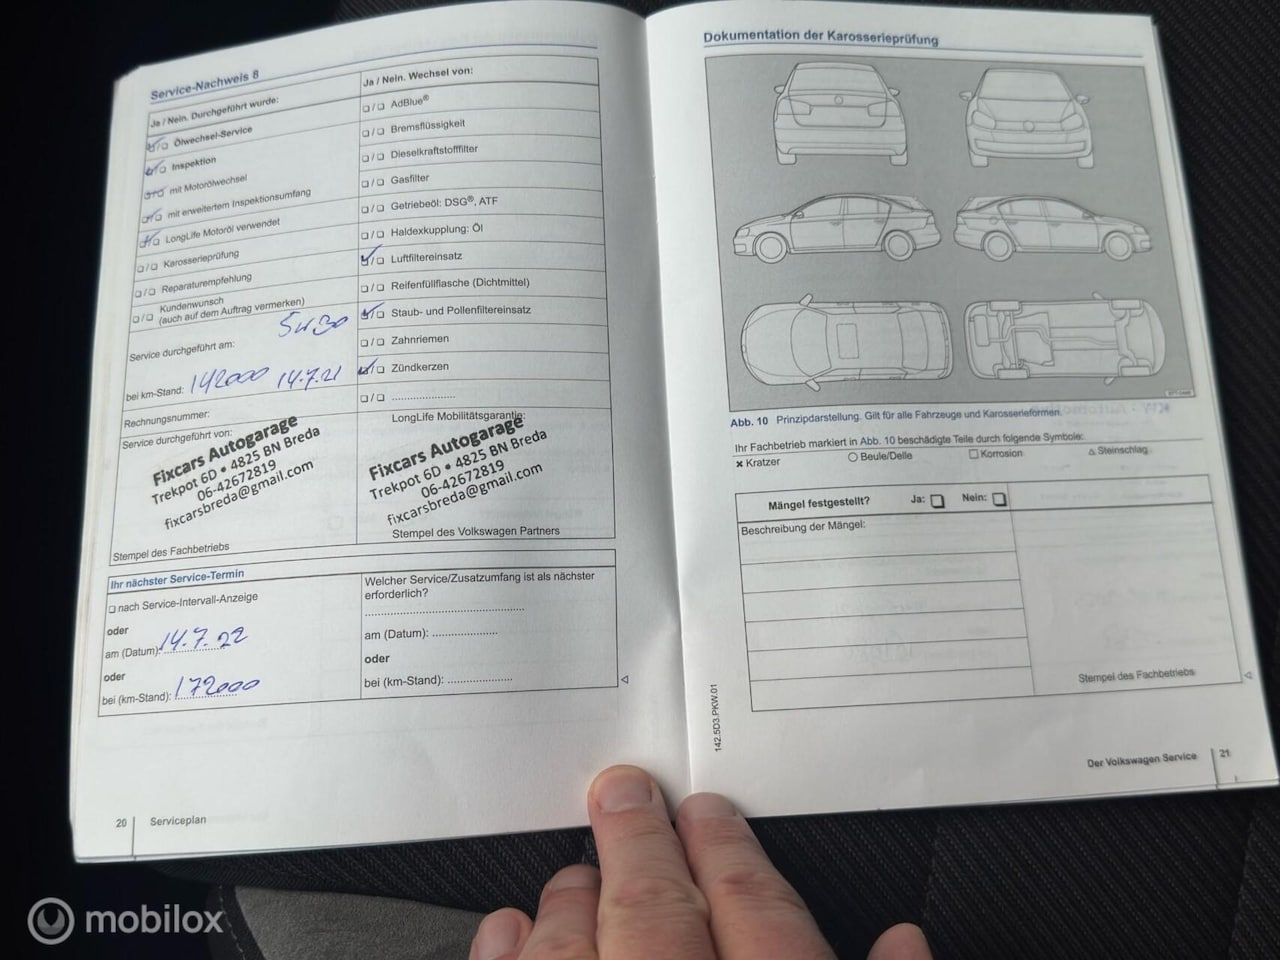 Service-Nachweis 8
Ja / Nein. Durchgeführt wurde:
❏ / ❏ Ölwechsel-Service
❏ / ❏ Inspektion
❏ / ❏ mit Motorölwechsel
❏ / ❏ mit erweitertem Inspektionsumfang
❏ / ❏ LongLife Motoröl verwendet
❏ / ❏ Karosserieprüfung
❏ / ❏ Reparaturempfehlung
❏ / ❏ Kundenwunsch
(auch auf dem Auftrag vermerken)
5w30
Service durchgeführt am:
bei km-Stand: 142000 14.7.21
Rechnungsnummer:
Service durchgeführt von:
Fixcars Autogarage
Trekpot 6D • 4825 BN Breda
06-42672819
fixcarsbreda@gmail.com
Stempel des Fachbetriebs
Ja / Nein. Wechsel von:
❏ / ❏ AdBlue®
❏ / ❏ Bremsflüssigkeit
❏ / ❏ Dieselkraftstofffilter
❏ / ❏ Gasfilter
❏ / ❏ Getriebeöl: DSG®, ATF
❏ / ❏ Haldexkupplung: Öl
❏ / ❏ Luftfiltereinsatz
❏ / ❏ Reifenfüllflasche (Dichtmittel)
❏ / ❏ Staub- und Pollenfiltereinsatz
❏ / ❏ Zahnriemen
❏ / ❏ Zündkerzen
❏ / ❏ .....................
LongLife Mobilitätsgarantie:
Fixcars Autogarage
Trekpot 6D • 4825 BN Breda
06-42672819
fixcarsbreda@gmail.com
Stempel des Volkswagen Partners
Ihr nächster Service-Termin
❏ nach Service-Intervall-Anzeige
oder
am (Datum): 14.7.22
oder
bei (km-Stand): 172000
Welcher Service/Zusatzumfang ist als nächster
erforderlich?
.....................................................
am (Datum): .....................
oder
bei (km-Stand): .....................
20 Serviceplan
Dokumentation der Karosserieprüfung
Abb. 10 Prinzipdarstellung. Gilt für alle Fahrzeuge und Karosserieformen.
Ihr Fachbetrieb markiert in Abb. 10 beschädigte Teile durch folgende Symbole:
✖ Kratzer ○ Beule/Delle □ Korrosion △ Steinschlag
Mängel festgestellt? Ja: ❏ Nein: ❏
Beschreibung der Mängel:
Stempel des Fachbetriebs
142.5D3.PKW.01
Der Volkswagen Service 21
mobilox